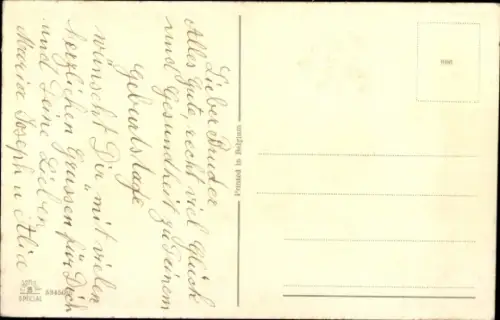 Lieber Bruder
Alles Gute, recht viel Glück
und Gesundheit zu Deinem
Geburtstage
wünscht Dir mit vielen
herzlichen Grüssen für Dich
und Deine Lieben
Maria Joseph u
Printed in
SPECIAL